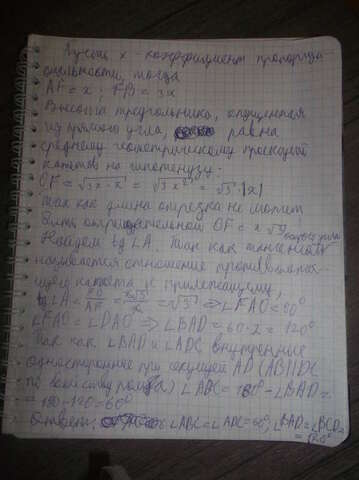 Пусть x - коэффициент пропорци-
ональности, тогда
AF = x ; FB = 3x
Высота треугольника, опущенная
из прямого угла, равна
среднему геометрическому проекций
катетов на гипотенузу.
OF = √3x·x = √3x² = √3·|x|
Так как длина отрезка не может
быть отрицательной OF = x√3
Найдем tg∠A. Так как тангенсом
называется отношение противолежа-
щего катета к прилежащему,
tg∠A = = x√3 = √3 ⇒ ∠FAO = 60°
∠FAO = ∠DAO ⇒ ∠BAD = 60·2 = 120°
Так как ∠BAD и ∠ADC внутренние
односторонние при секущей AD (AB||DC
по свойству ромба) ∠ADC = 180° - ∠BAD =
= 180 - 120 = 60°
Ответ: ∠ABC = ∠ADC = 60°, ∠BAD = ∠BCD =
= 120°